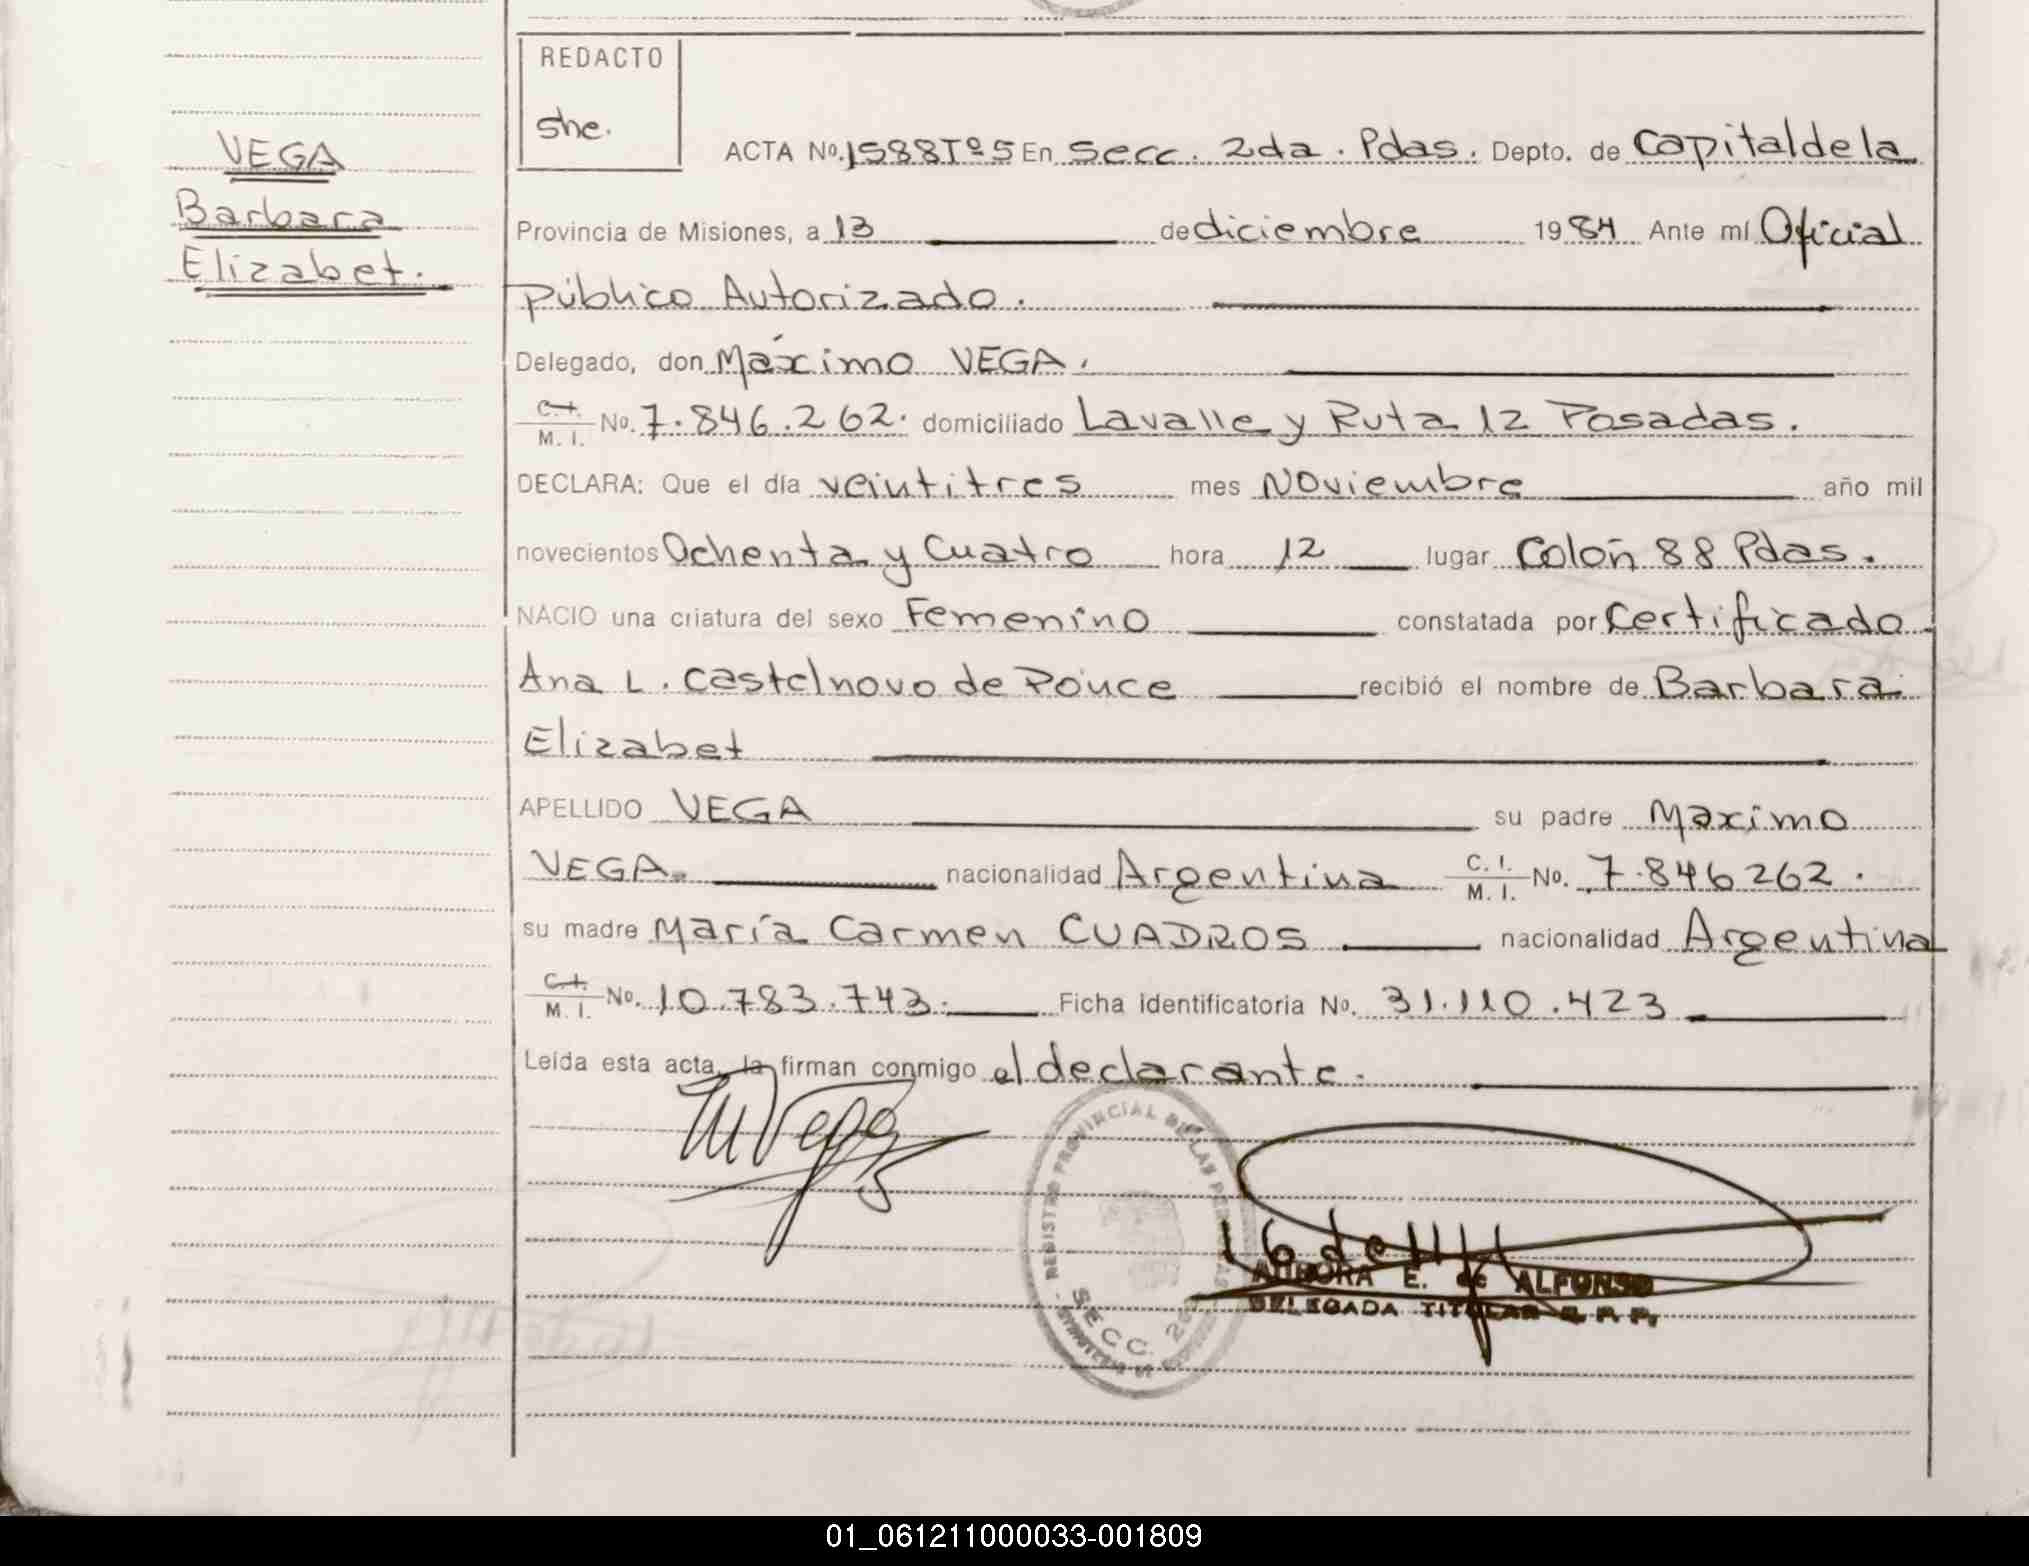 REDACTO
she.
VEGA
Barbara
Elizabet.
ACTA No. 1588 Tº 5 En Secc. 2da. Pdas. Depto. de Capital de la
Provincia de Misiones, a 13 de diciembre 1984 Ante mí Oficial
Público Autorizado.
Delegado, don Máximo VEGA.
C.I. M. I. No. 7.846.262. domiciliado Lavalle y Ruta 12 Posadas.
DECLARA: Que el día veintitres mes Noviembre año mil
novecientos Ochenta y Cuatro hora 12 lugar Colón 88 Pdas.
NACIO una criatura del sexo Femenino constatada por Certificado
Ana L. Castelnovo de Ponce recibió el nombre de Barbara
Elizabet
APELLIDO VEGA su padre Maximo
VEGA. nacionalidad Argentina C. I. M. I. No. 7.846262.
su madre María Carmen CUADROS nacionalidad Argentina
C.I. M. I. No. 10.783.743. Ficha identificatoria No. 31.110.423
Leída esta acta, la firman conmigo el declarante.
M Vega
REGISTRO PROVINCIAL DE LAS PERSONAS
SECC. 2da
AURORA E. de ALFONSO
DELEGADA TITULAR R. P. P.
01_061211000033-001809